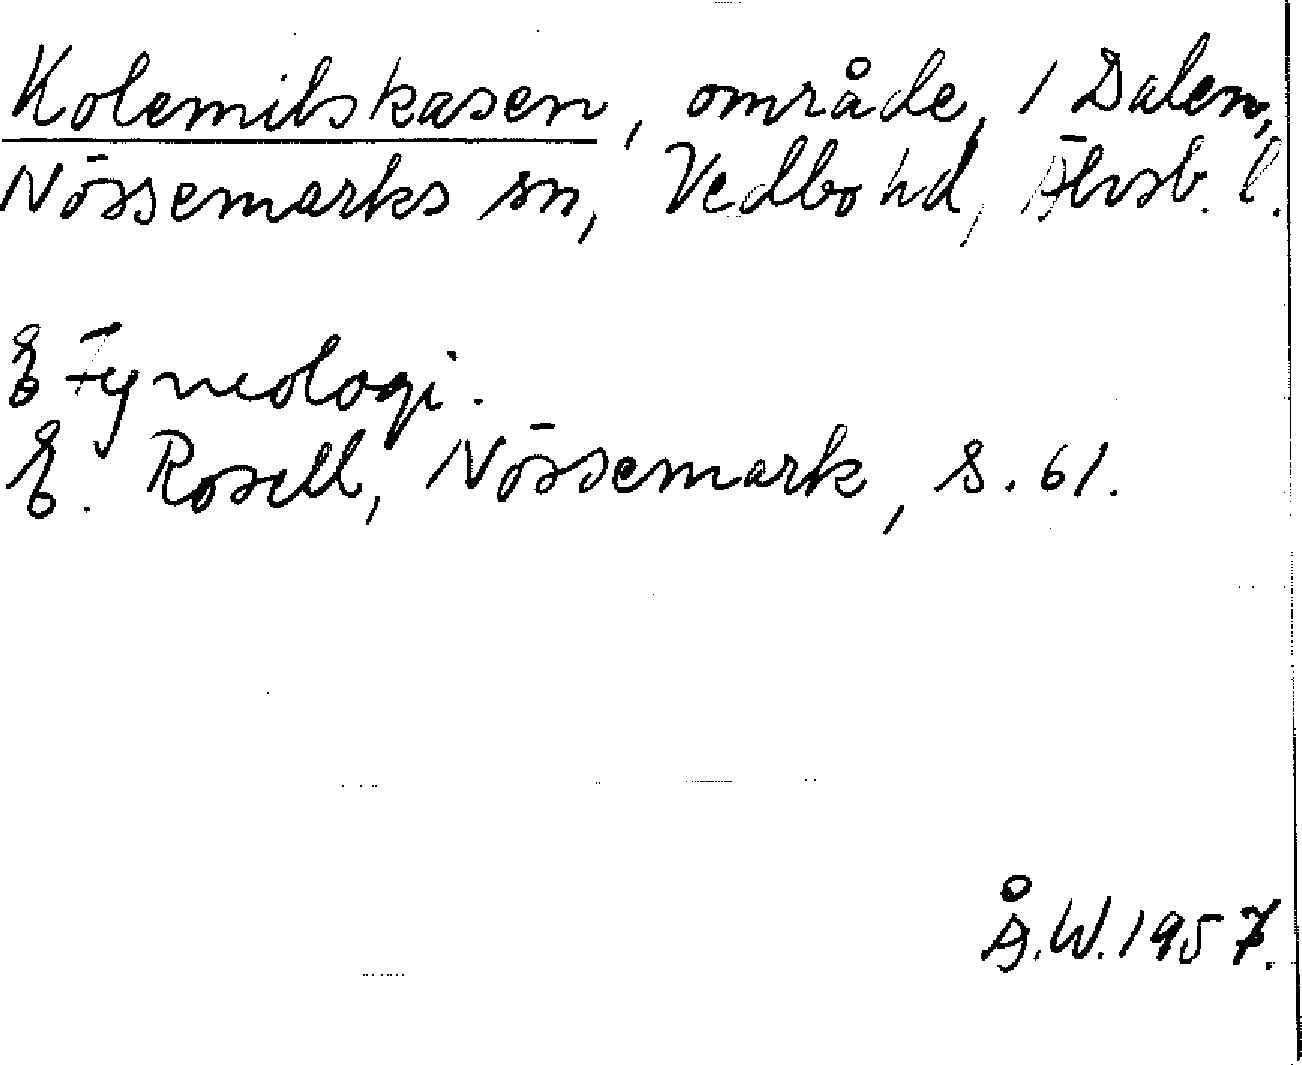 Kolemilskasen, område, 1 Dalen,
Nössemarks sn, Vedbo hd, Älvsb. l.
E Fyneologi.
E. Rosell, Nössemark, S. 61.
Å.W.1957.